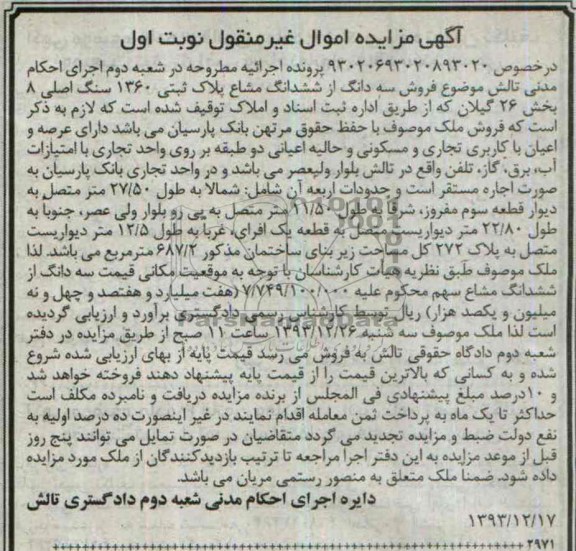 آگهی مزایده اموال غیرمنقول نوبت اول
درخصوص ۹۳۰۲۰۶۹۳۰۲۰۸۹۳۰۲۰ پرونده اجرائیه مطروحه در شعبه دوم اجرای احکام
مدنی تالش موضوع فروش سه دانگ از ششدانگ مشاع پلاک ثبتی ۱۳۶۰ سنگ اصلی ۸
بخش ۲۶ گیلان که از طریق اداره ثبت اسناد و املاک توقیف شده است که لازم به ذکر
است که فروش ملک موصوف با حفظ حقوق مرتهن بانک پارسیان می باشد دارای عرصه و
اعیان با کاربری تجاری و مسکونی و حالیه اعیانی دو طبقه بر روی واحد تجاری با امتیازات
آب، برق، گاز، تلفن واقع در تالش بلوار ولیعصر می باشد و در واحد تجاری بانک پارسیان به
صورت اجاره مستقر است و حدودات اربعه آن شامل: شمالا به طول ۲۷/۵۰ متر متصل به
دیوار قطعه سوم مفروز، شرقا به طول ۱۱/۵ متر متصل به پی رو بلوار ولی عصر، جنوبا به
طول ۲۲/۸۰ متر دیواریست متصل به قطعه یک افرای، غربا به طول ۱۲/۵ متر دیواریست
متصل به پلاک ۲۷۲ کل مساحت زیر بنای ساختمان مذکور ۶۸۷/۲ مترمربع می باشد. لذا
ملک موصوف طبق نظریه هیأت کارشناسان با توجه به موقعیت مکانی قیمت سه دانگ از
ششدانگ مشاع سهم محکوم علیه ۷/۷۴۹/۱۰۰/۰۰۰ (هفت میلیارد و هفتصد و چهل و نه
میلیون و یکصد هزار) ریال توسط کارشناس رسمی دادگستری برآورد و ارزیابی گردیده
است لذا ملک موصوف سه شنبه ۱۳۹۳/۱۲/۲۶ ساعت ۱۱ صبح از طریق مزایده در دفتر
شعبه دوم دادگاه حقوقی تالش به فروش می رسد قیمت پایه از بهای ارزیابی شده شروع
شده و به کسانی که بالاترین قیمت را از قیمت پایه پیشنهاد دهند فروخته خواهد شد
و ۱۰درصد مبلغ پیشنهادی فی المجلس از برنده مزایده دریافت و نامبرده مکلف است
حداکثر تا یک ماه به پرداخت ثمن معامله اقدام نمایند در غیر اینصورت ده درصد اولیه به
نفع دولت ضبط و مزایده تجدید می گردد متقاضیان در صورت تمایل می توانند پنج روز
قبل از موعد مزایده به این دفتر اجرا مراجعه تا ترتیب بازدیدکنندگان از ملک مورد مزایده
داده شود. ضمنا ملک متعلق به منصور رستمی مریان می باشد.
دایره اجرای احکام مدنی شعبه دوم دادگستری تالش
۱۳۹۳/۱۲/۱۷
۲۹۷۱